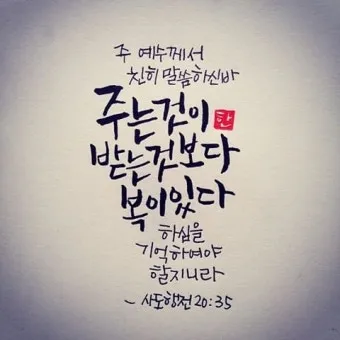 주 예수께서
친히 말씀하신바
주는것이
한
받는것보다
복이있다
하심을
기억하여야
할지니라
- 사도행전 20:35